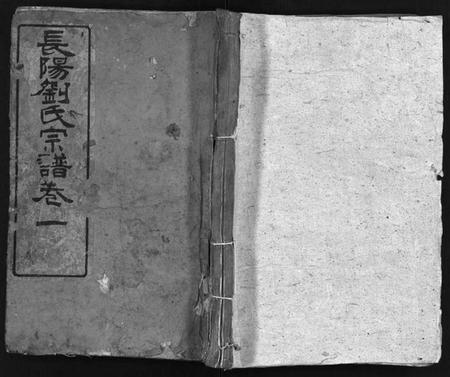 長陽劉氏宗譜卷一